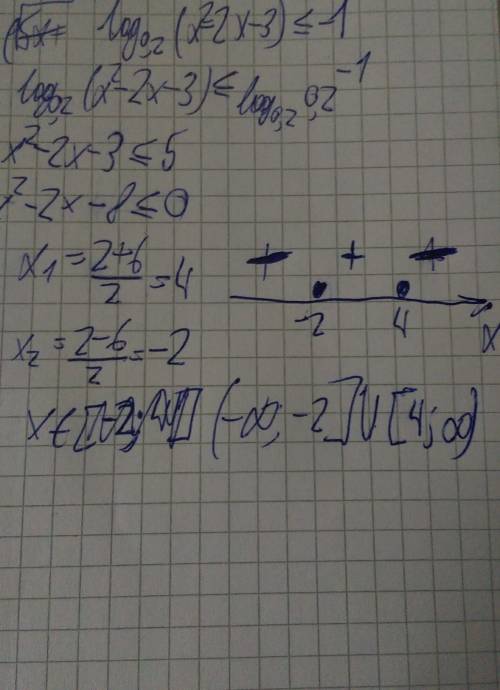 log₀,₂(x²-2x-3) ≤ -1
log₀,₂(x²-2x-3) ≤ log₀,₂ 0,2⁻¹
x²-2x-3 ≤ 5
x²-2x-8 ≤ 0
x₁ = (2+6)/2 = 4
+ + +
-2 4 x
x₂ = (2-6)/2 = -2
x ∈ (-∞; -2] ∪ [4; ∞)